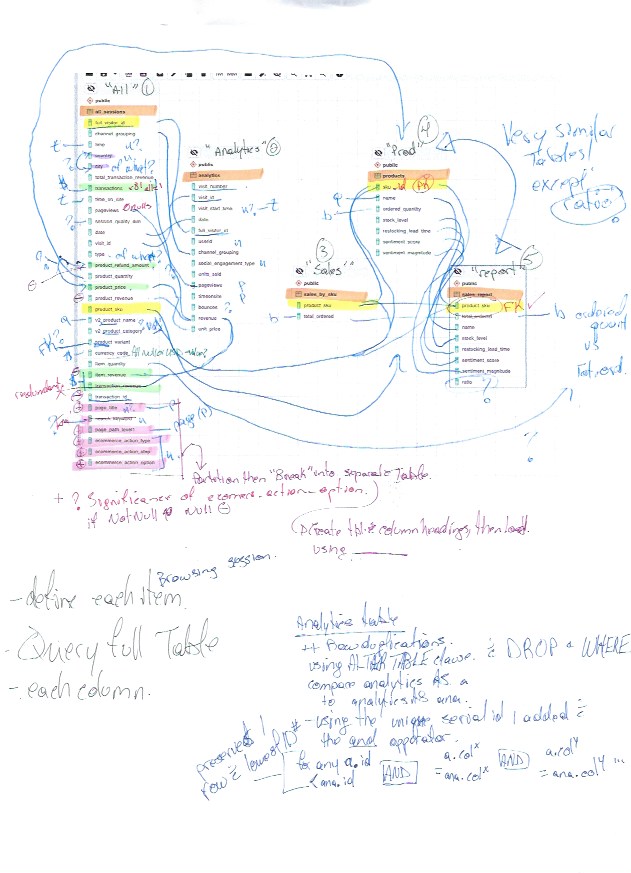 "All" ①
public
all_sessions
full_visitor_id
channel_grouping
time
country
city
total_transaction_revenue
transactions
time_on_site
pageviews
session_quality_dim
date
visit_id
type
product_refund_amount
product_quantity
product_price
product_revenue
product_sku
v2_product_name
v2_product_category
product_variant
currency_code
item_quantity
item_revenue
transaction_revenue
transaction_id
page_title
search_keyword
page_path_level1
ecommerce_action_type
ecommerce_action_step
ecommerce_action_option
redundant
page (P)
"Analytics" ②
public
analytics
visit_number
visit_id
visit_start_time
date
full_visitor_id
userid
channel_grouping
social_engagement_type
units_sold
pageviews
timeonsite
bounces
revenue
unit_price
"Sales" ③
public
sales_by_sku
product_sku
total_ordered
"Prod" ④
public
products
sku
PK
name
ordered_quantity
stock_level
restocking_lead_time
sentiment_score
sentiment_magnitude
"report" ⑤
public
sales_report
product_sku
FK
total_ordered
name
stock_level
restocking_lead_time
sentiment_score
sentiment_magnitude
ratio
Very similar
Tables!
except
ratio
ordered
quant
vs
Tot. ord.
Partition then "Break" into separate Table.
+ ? Significance of ecomerc-action-option.
if Not Null Null
Create column headings, then load
using
Browsing session.
- define each item
- Query full Table
- each column.
Analytics table
++ Row duplications.
using ALTER TABLE clause. DROP & WHERE
compare analytics AS a
to analytics AS ana.
- using the unique serial id I added
the and opperator.
preserves
row lowest ID #
for any a.id
< ana.id
AND
a.col x
= ana.col x
AND
a.col y
= ana.col y ...